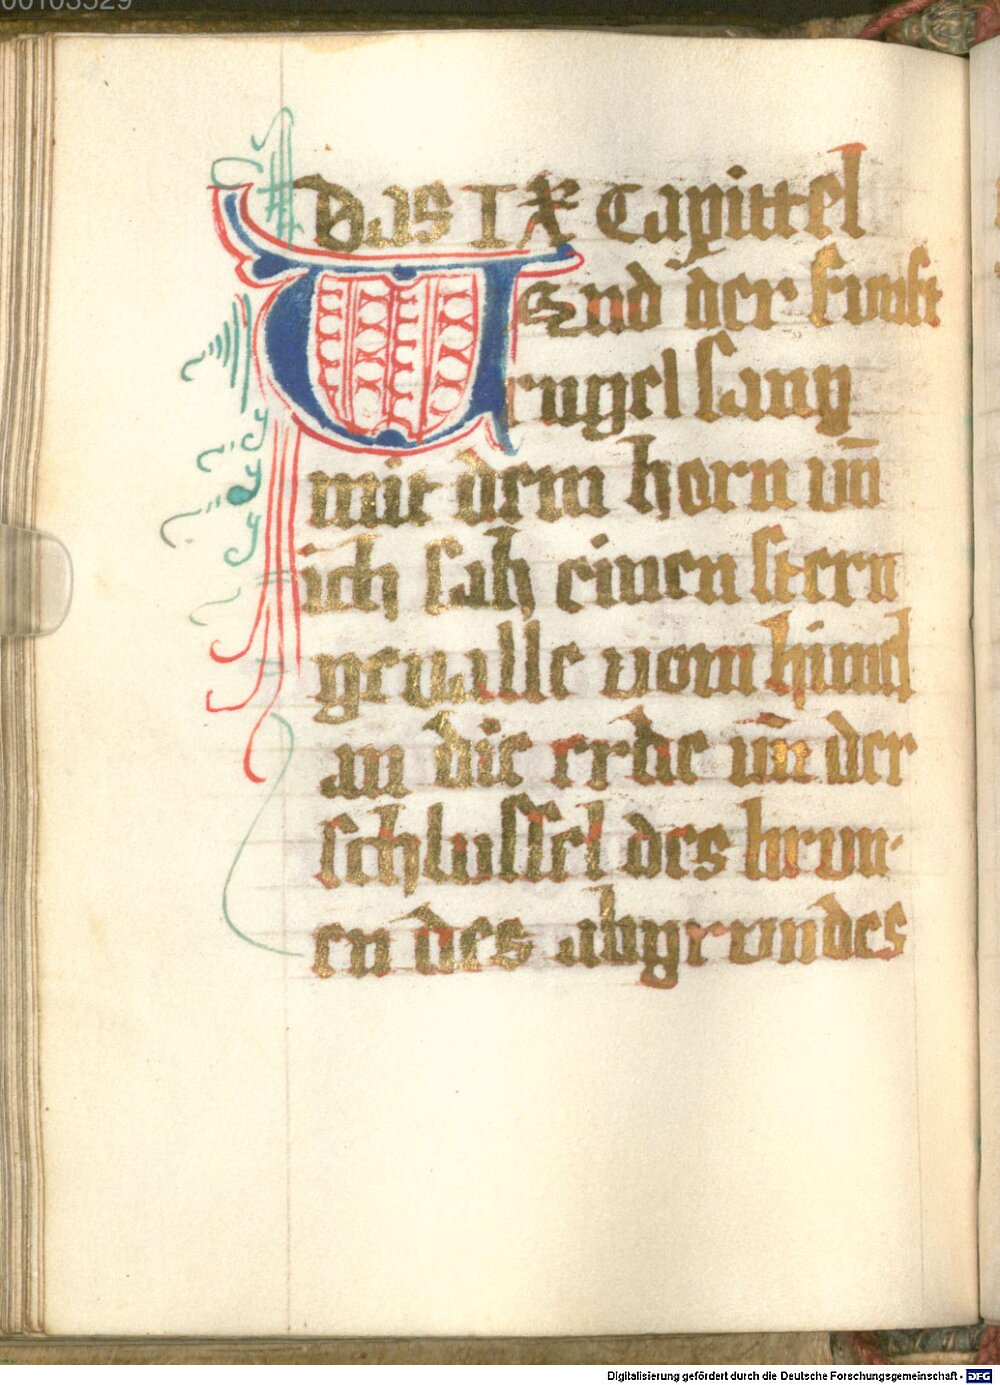 00103529
Das IX Capittel
Vnd der funft
engel sang
mit dem horn vn̄
ich sah einen stern
geualle vom himel
an die erde vn̄ der
schlussel des brun-
en des abgrundes
Digitalisierung gefördert durch die Deutsche Forschungsgemeinschaft - DFG